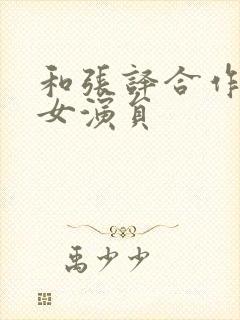 和張譯合作
女演員
禹少少